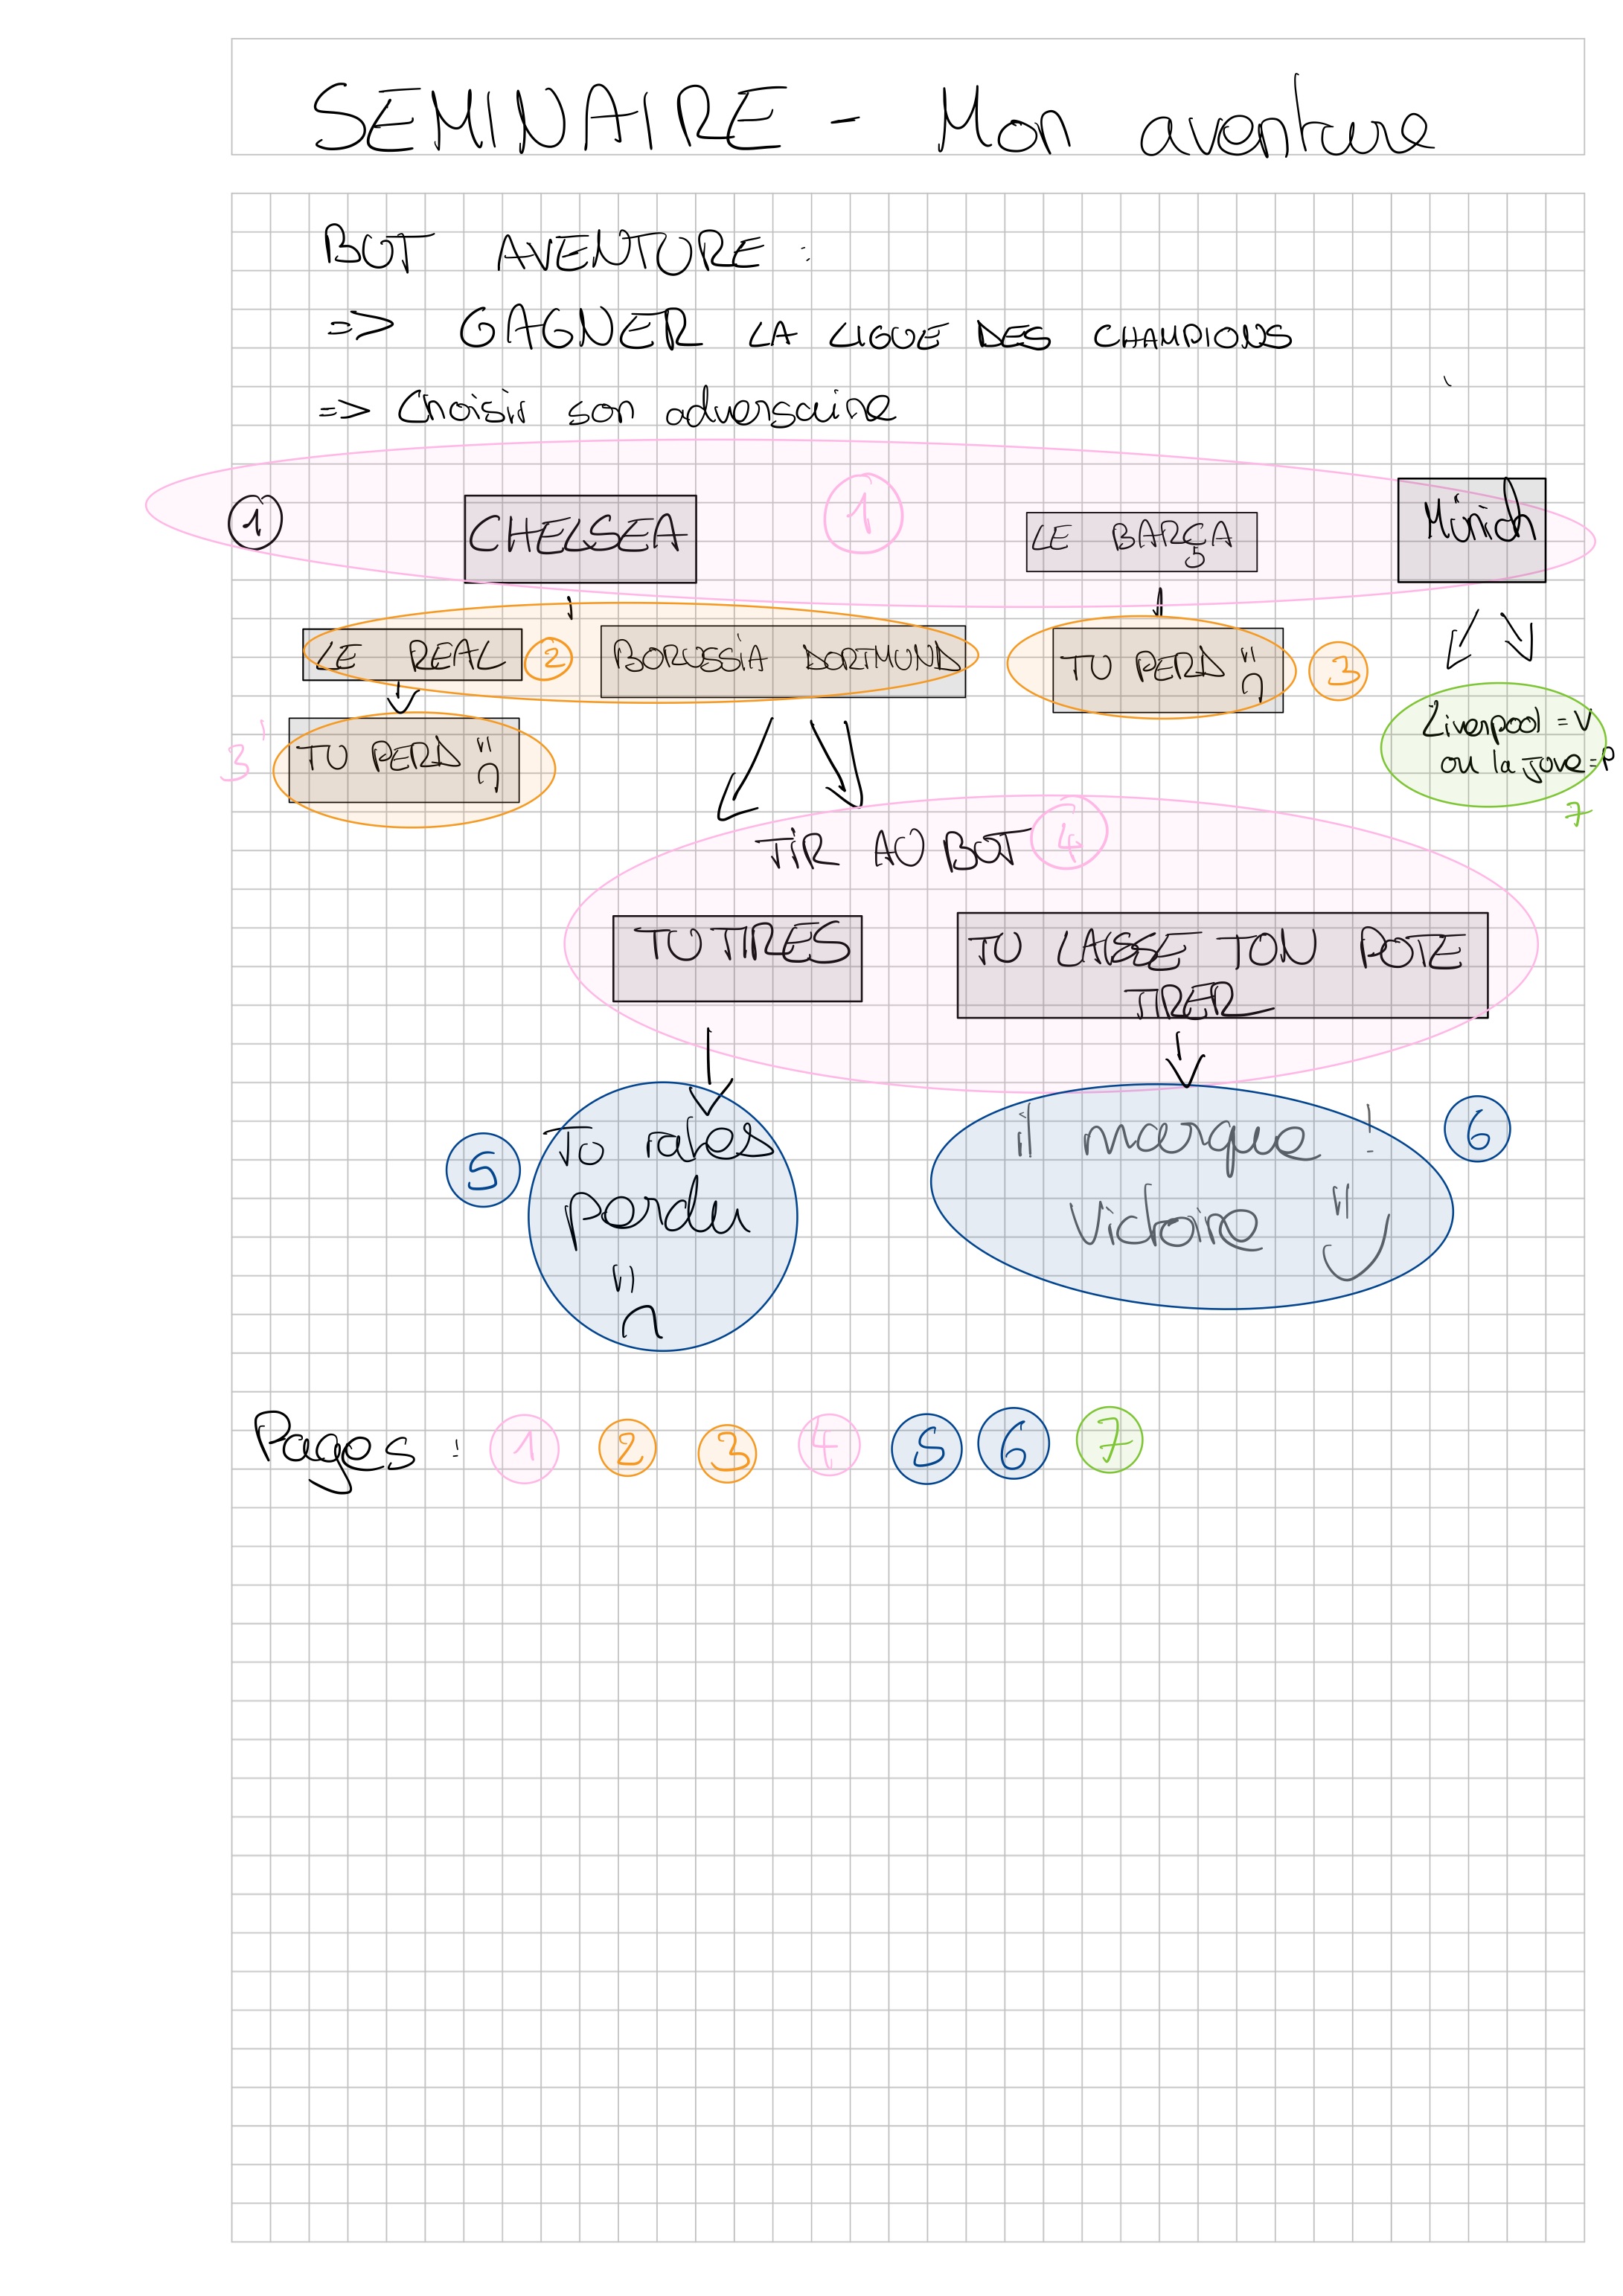 SEMINAIRE - Mon aventure
BUT AVENTURE :
=> GAGNER LA LIGUE DES CHAMPIONS
=> Choisir son adversaire
1 CHELSEA 1 LE BARÇA Münich
LE REAL 2 BORUSSIA DORTMUND TU PERD 3
3' TU PERD
Liverpool = V
ou la juve = P
7
TIR AU BUT 4
TU TIRES
TU LAISSE TON POTE
TIRER
5 TU rates
perdu
il marque ! 6
Victoire
Pages : 1 2 3 4 5 6 7